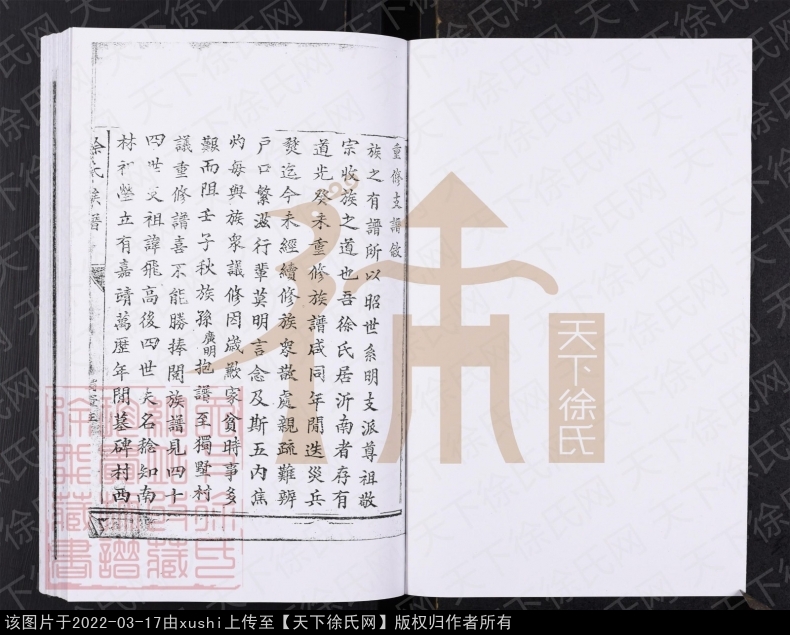 重修支譜啟
族之有譜所以昭世系明支派尊祖敬
宗收族之道也吾徐氏居沂南者存有
道光癸未重修族譜咸同年間迭災兵
燹迄今未經續修族衆散處親疏難辨
戶口繁滋行輩莫明言念及斯五內焦
灼每與族衆議修因歲歉家貧時事多
艱而阻壬子秋族孫廣明抱譜至獨墅村
議重修譜喜不能勝捧閱族譜見四十
四世文祖諱飛高後四世失名稔知南
林祖塋立有嘉靖萬歷年間墓碑村西
徐氏族譜
天下徐氏
天下徐氏网
该图片于2022-03-17由xushi上传至【天下徐氏网】版权归作者所有